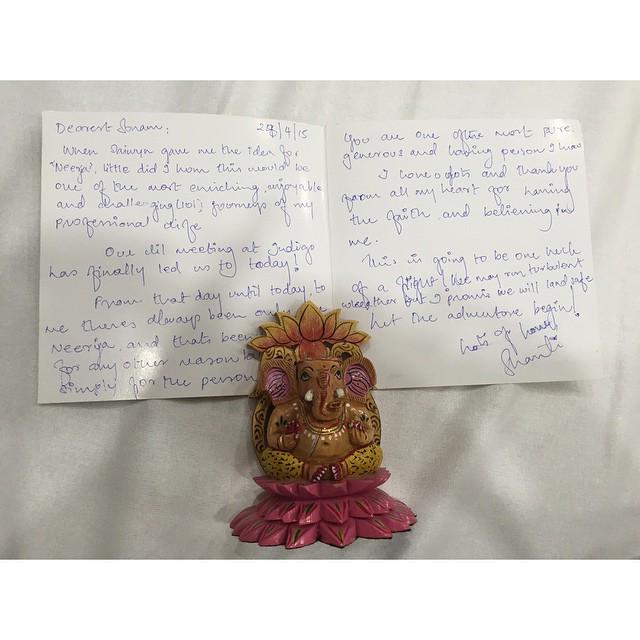 Dearest Sonam,
2 /4/15
When Saiwyn gave me the idea for
'Neerja', little did I know this would be
one of the most enriching, enjoyable
and challenging (lol) journeys of my
professional life
Our lil meeting at Indigo
has finally led us to today!
From that day until today, to
me theres always been on
Neerja, and thats been
for any other reason b
simply for the person
You are one of the most pure,
generous and loving person I know
I love and thank you
from all my heart for having
the faith and believing in
me.
This is going to be one heck
of a flight! We may run turbulent
weather but I promis we will land safe
Let the adventure begin!
Lots of love